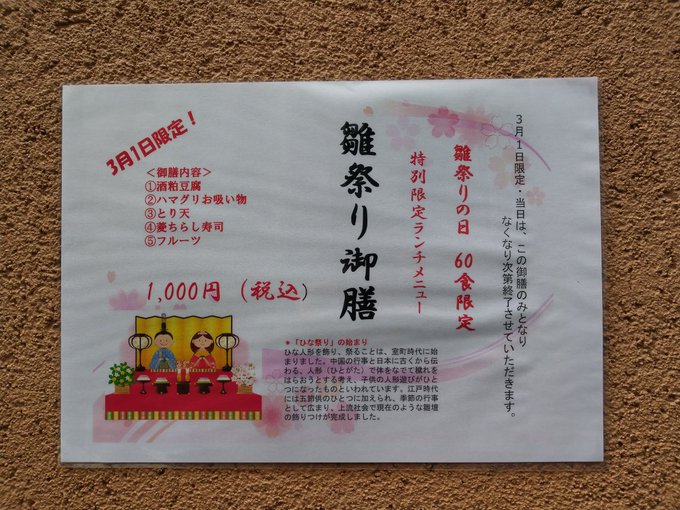 3月1日限定・当日は、この御膳のみとなり
なくなり次第終了させていただきます。
雛祭りの日 60食限定
特別限定ランチメニュー
雛祭り御膳
3月1日限定！
＜御膳内容＞
①酒粕豆腐
②ハマグリお吸い物
③とり天
④菱ちらし寿司
⑤フルーツ
1,000円（税込）
＊「ひな祭り」の始まり
ひな人形を飾り、祭ることは、室町時代に始
まりました。中国の行事と日本に古くから伝
わる、人形（ひとがた）で体をなでて穢れを
はらおうとする考え、子供の人形遊びがひと
つになったものといわれています。江戸時代
には五節供のひとつに加えられ、季節の行事
として広まり、上流社会で現在のような雛壇
の飾りつけが完成しました。